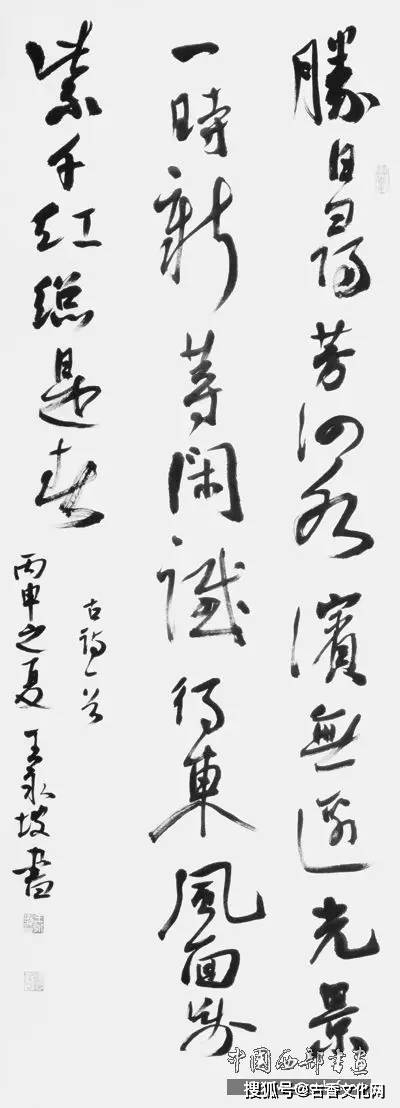 勝日尋芳泗水濱無邊光景
一時新等閑識得東風面萬
紫千紅總是春
古詩一首
丙申之夏 王永坡書
中國西部书畫
搜狐号@古香文化网